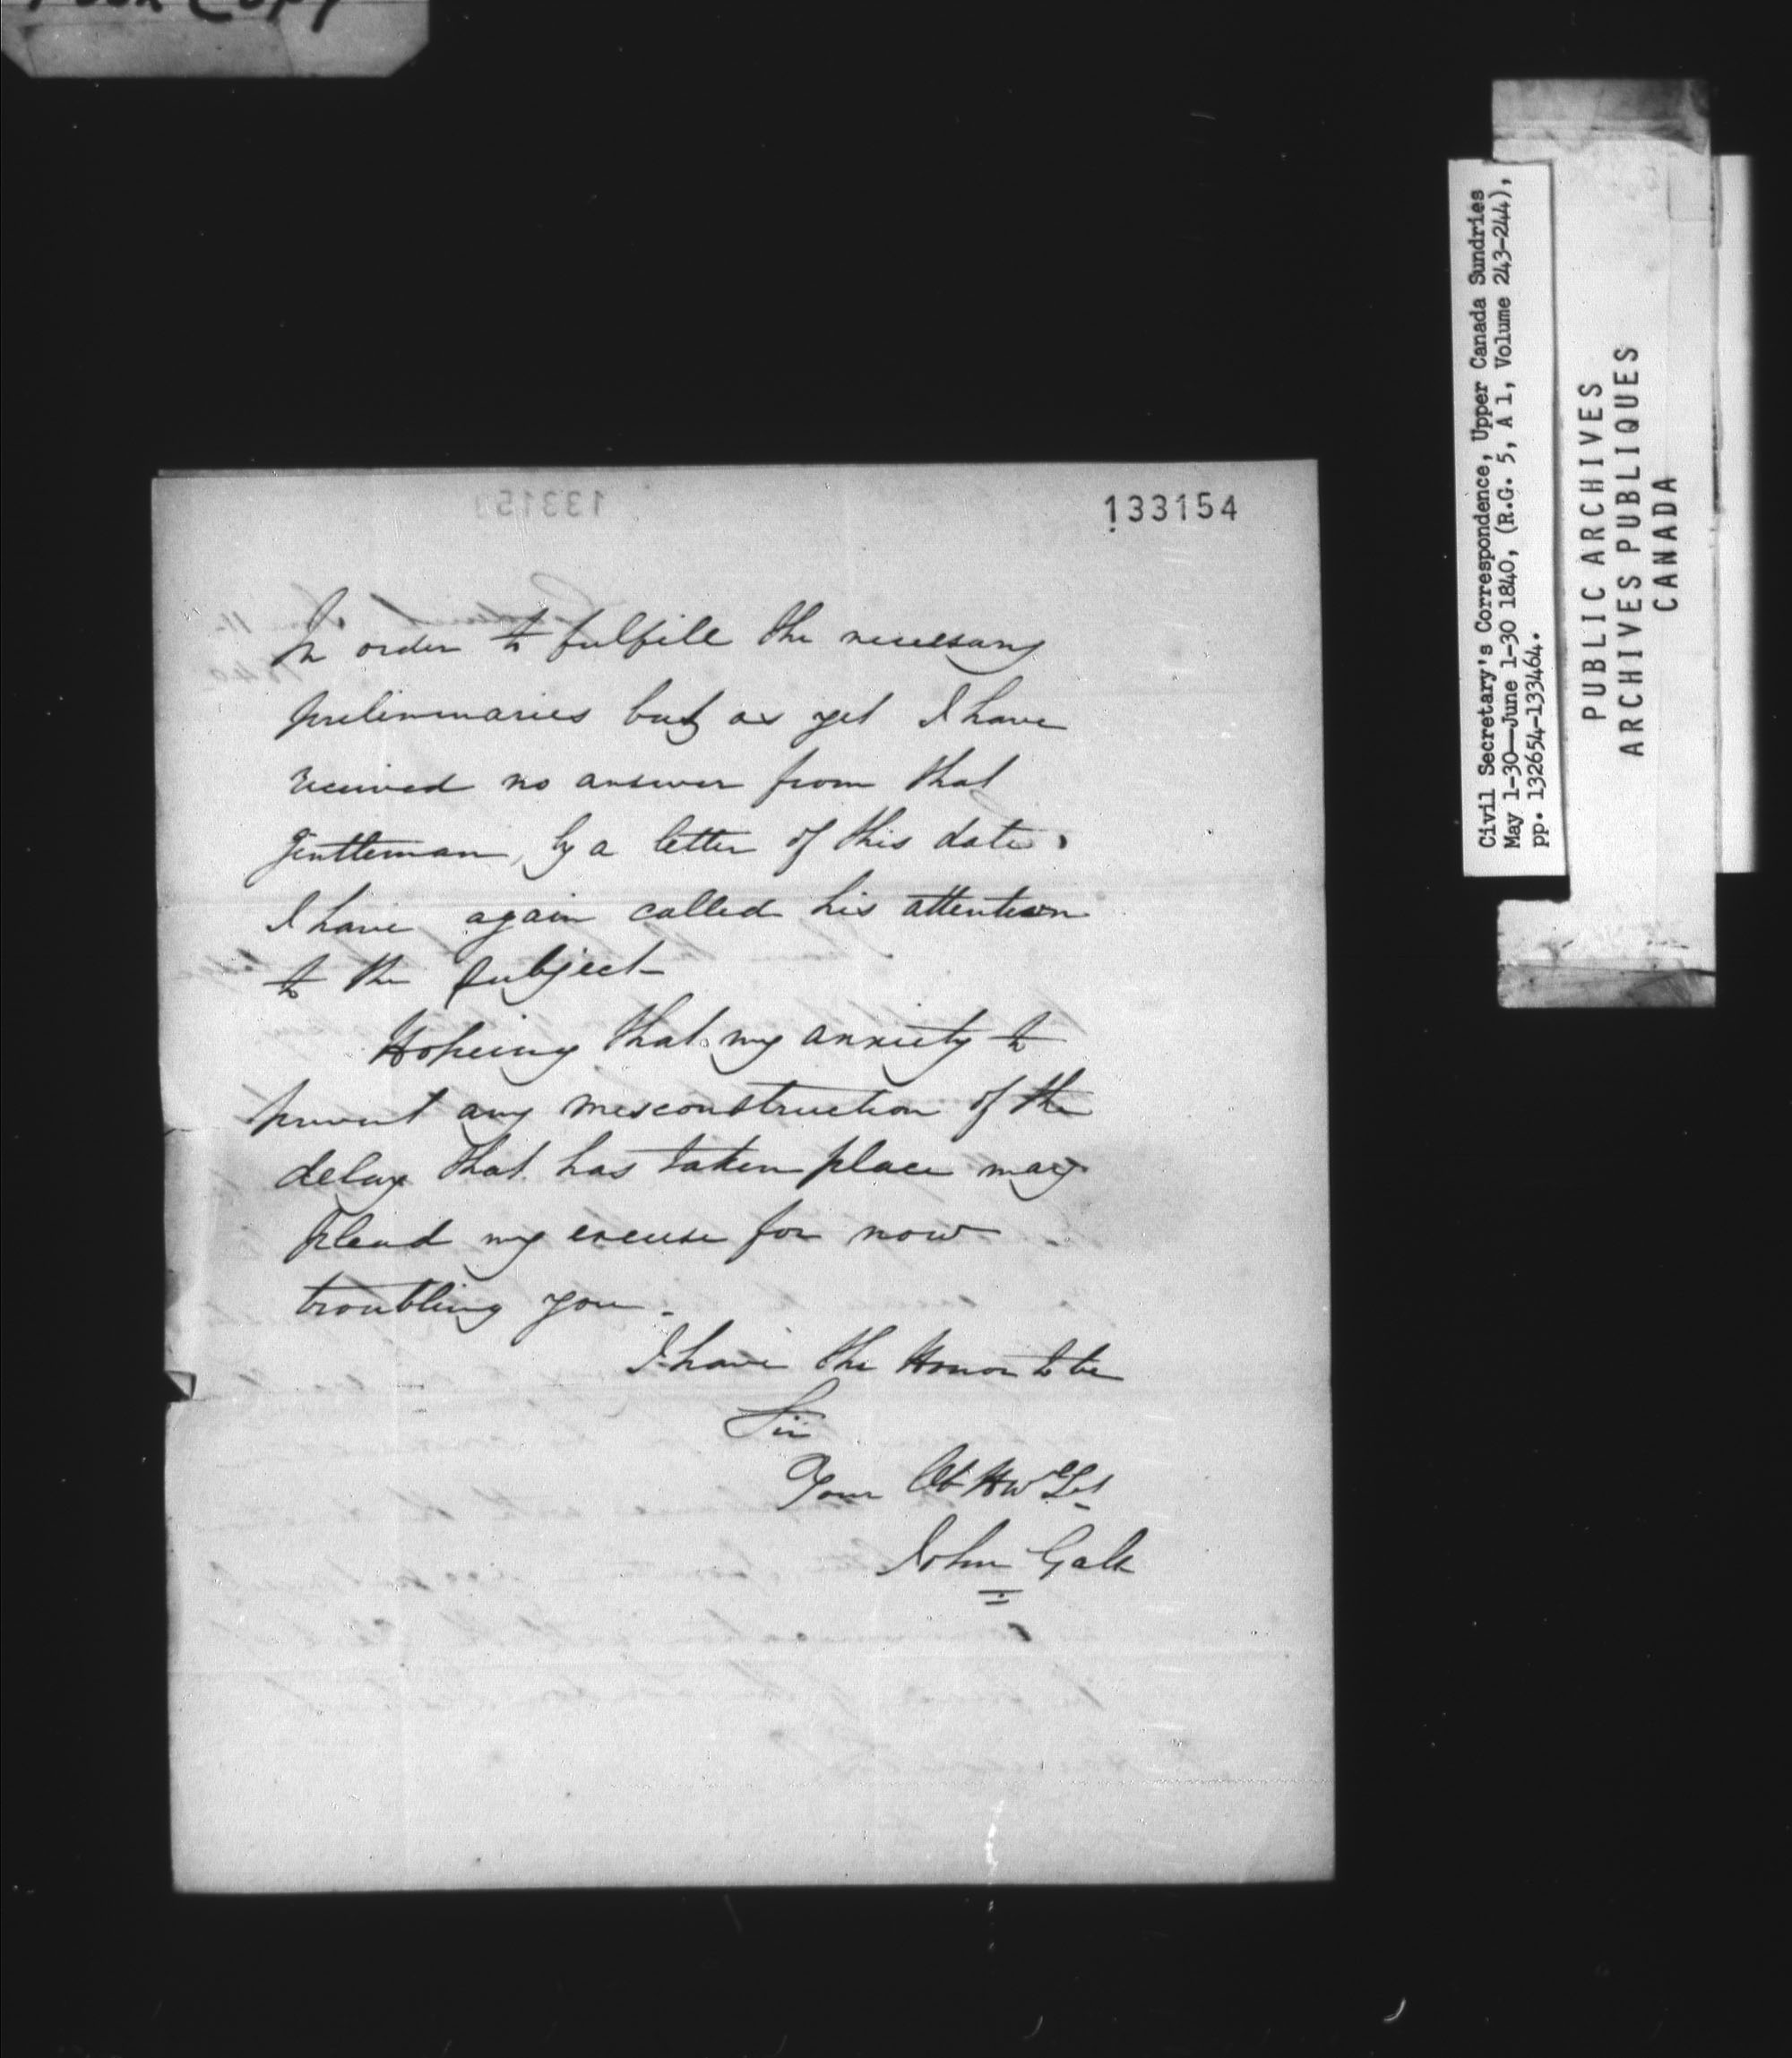 Poor Copy
133154
In order to fulfill the necessary
preliminaries but as yet I have
received no answer from that
Gentleman, by a letter of this date,
I have again called his attention
to the Subject—
Hopeing that my anxiety to
prevent any misconstruction of the
delay that has taken place may
plead my excuse for now
troubling you.
I have the Honor to be
Sir
Your Ob Hble St
John Galt
Civil Secretary's Correspondence, Upper Canada Sundries
May 1-30—June 1-30 1840, (R.G. 5, A 1, Volume 243-244),
pp. 132654-133464.
PUBLIC ARCHIVES
ARCHIVES PUBLIQUES
CANADA